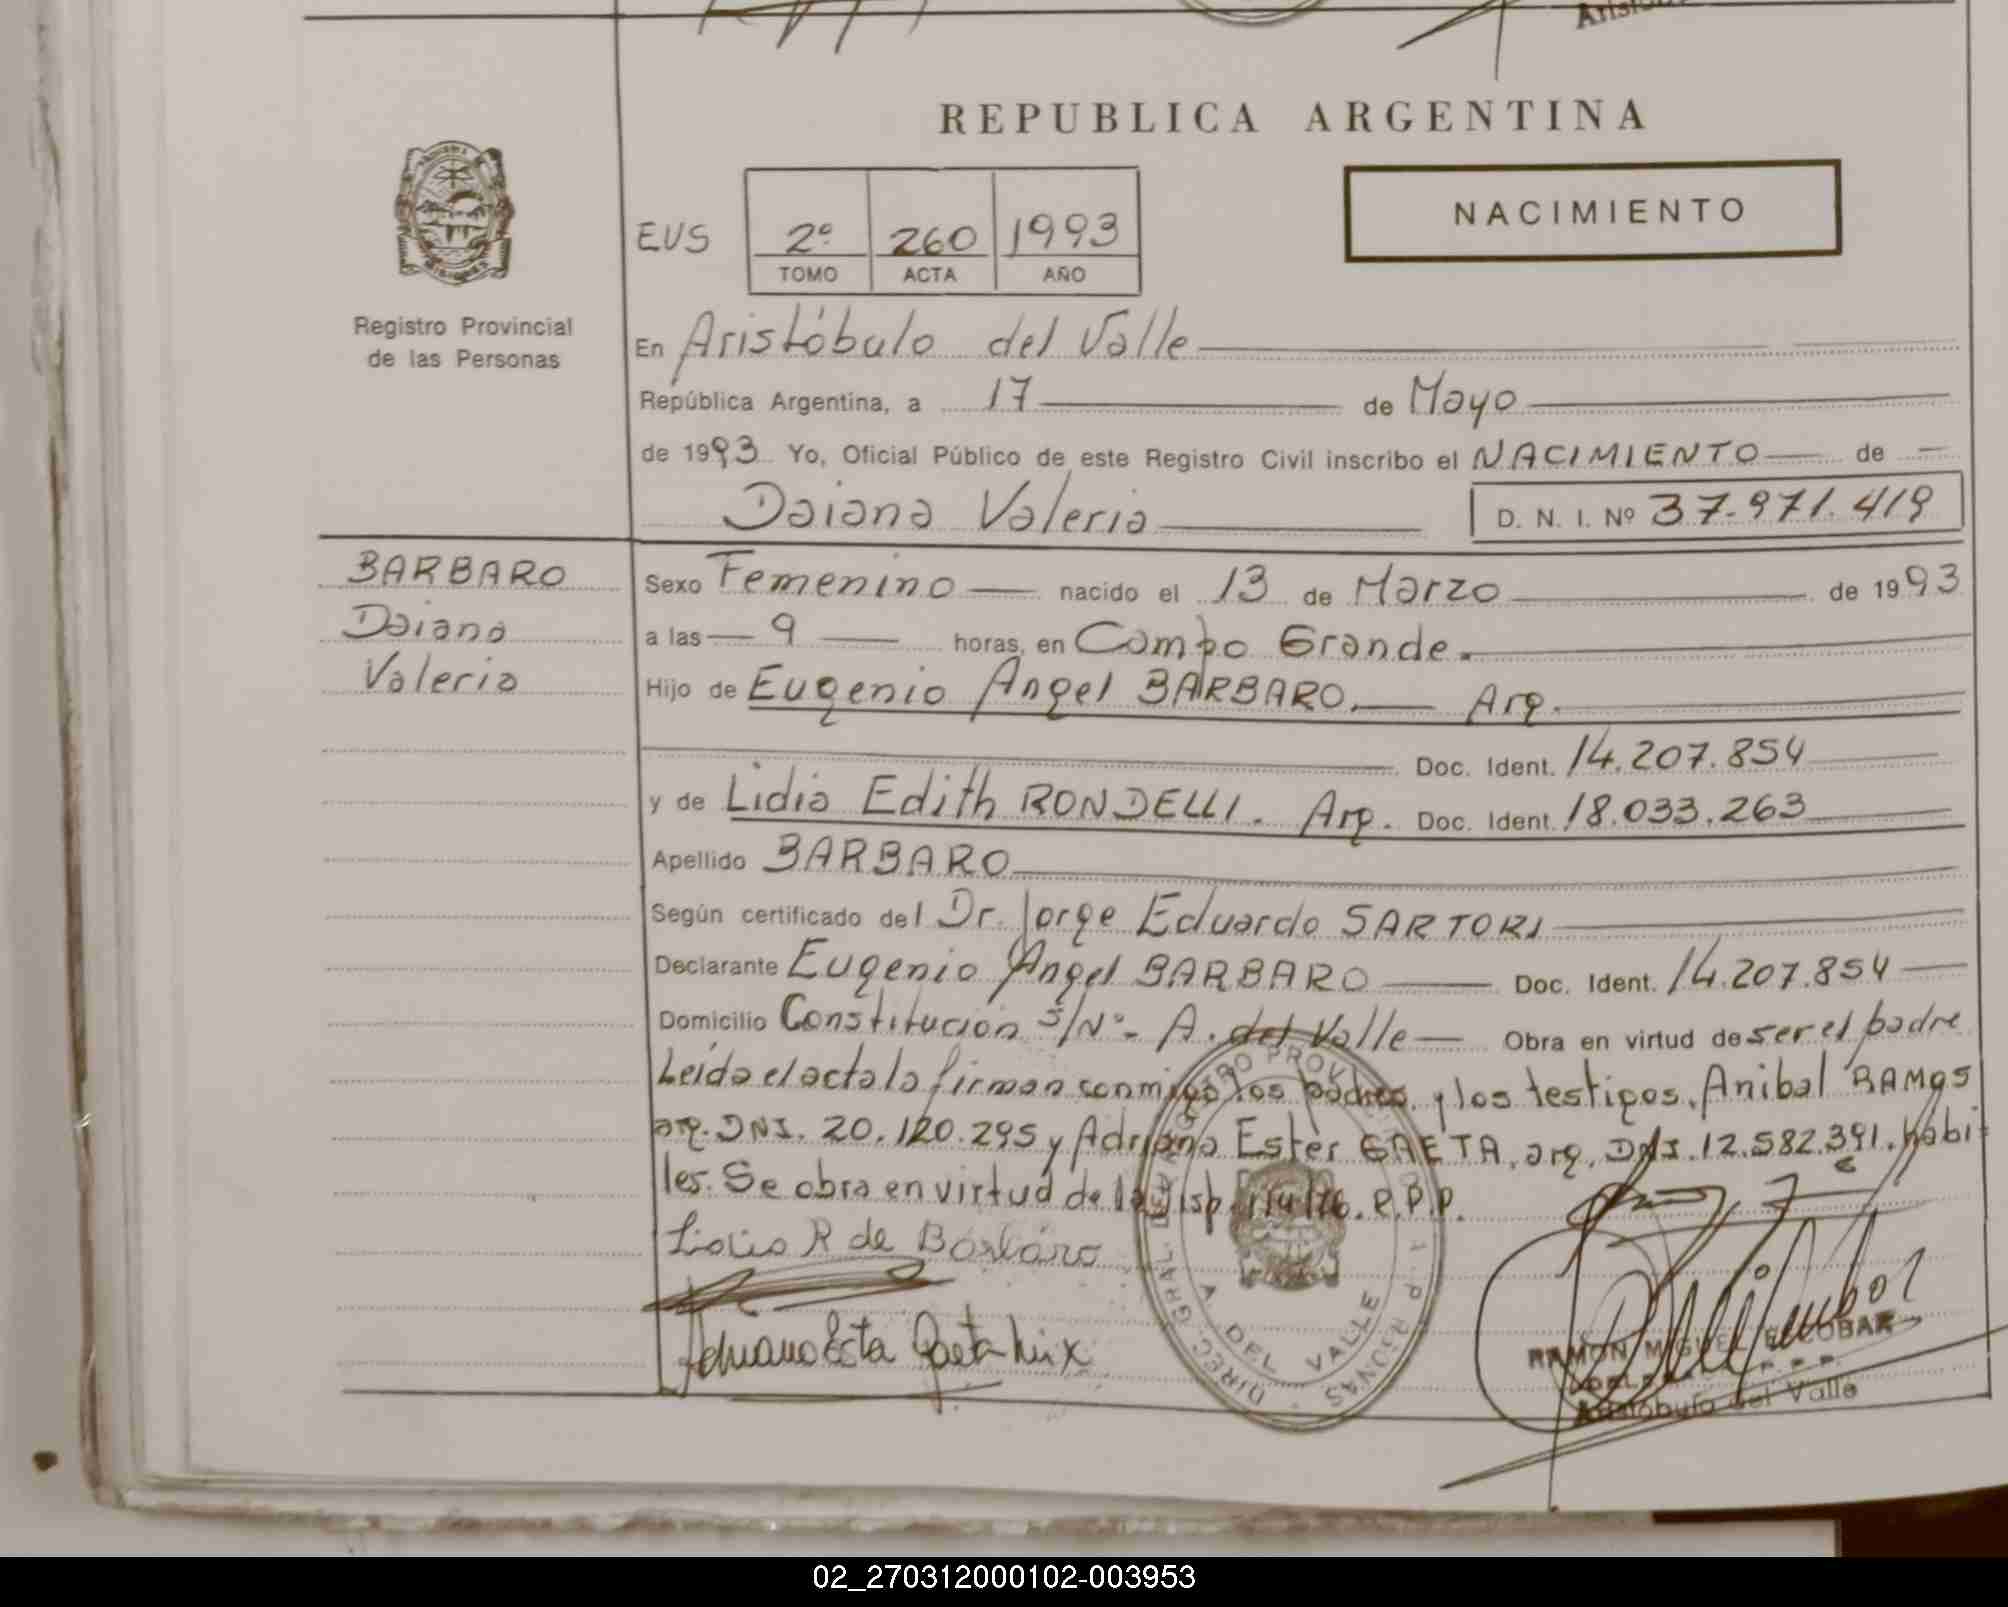 REPUBLICA ARGENTINA
NACIMIENTO
EUS 2º 260 1993
TOMO ACTA AÑO
Registro Provincial
de las Personas
En Aristóbulo del Valle
República Argentina, a 17 de Mayo
de 1993 Yo, Oficial Público de este Registro Civil inscribo el NACIMIENTO de
Daiana Valeria D. N. I. Nº 37.971.419
BARBARO
Daiana
Valeria
Sexo Femenino nacido el 13 de Marzo de 1993
a las 9 horas, en Campo Grande.
Hijo de Eugenio Angel BARBARO. Arg.
Doc. Ident. 14.207.854
y de Lidia Edith RONDELLI. Arg. Doc. Ident. 18.033.263
Apellido BARBARO
Según certificado del Dr. Jorge Eduardo SARTORI
Declarante Eugenio Angel BARBARO Doc. Ident. 14.207.854
Domicilio Constitución S/Nº- A. del Valle Obra en virtud de ser el padre
Leída el acta la firman conmigo los padres, y los testigos, Anibal RAMOS
arg. DNI. 20.120.295 y Adriana Ester GAETA, arg, DNI. 12.582.391. hábi-
les. Se obra en virtud de la Disp. R.P.P.
Lidia R de Bárbaro
RAMON MIGUEL ESCOBAR
Aristóbulo del Valle
A. DEL VALLE
02_270312000102-003953